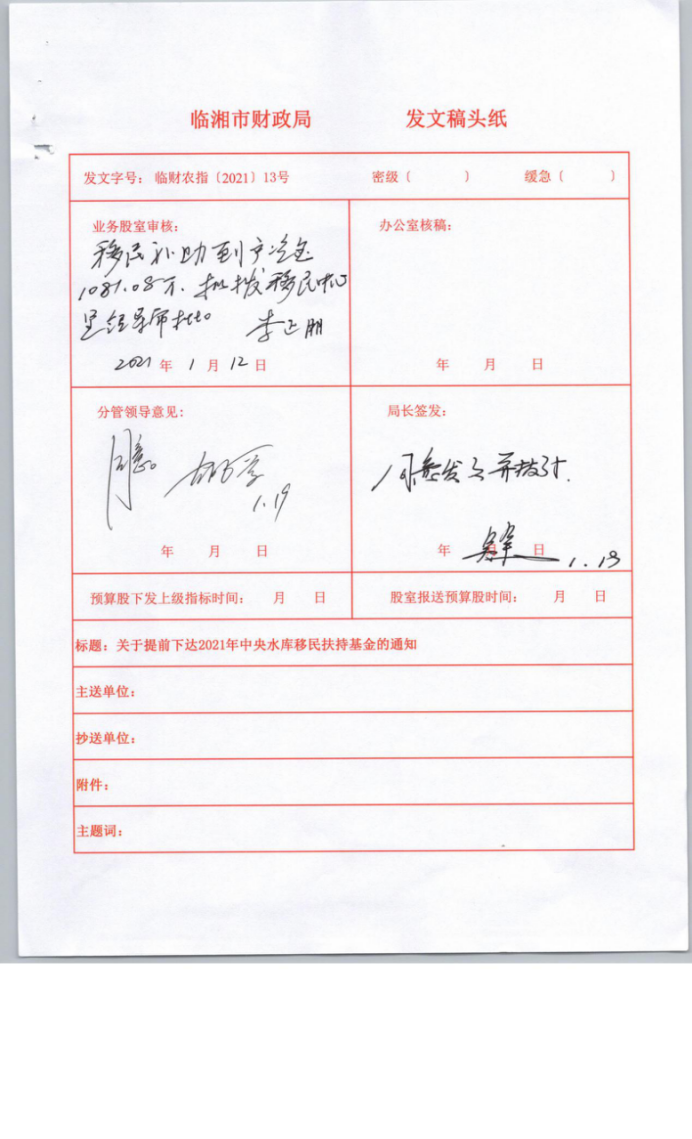 临湘市财政局 发文稿头纸
发文字号：临财农指〔2021〕13号 密级（ ） 缓急（ ）
业务股室审核：
移民补助到户资金
1081.08万.拟拨移民中心
呈领导审批。 李正朋
2021年1月12日
办公室核稿：
年 月 日
分管领导意见：
同意。
1.19
年 月 日
局长签发：
同意发文并拨付.
年 月 日
1.18
预算股下发上级指标时间： 月 日
股室报送预算股时间： 月 日
标题：关于提前下达2021年中央水库移民扶持基金的通知
主送单位：
抄送单位：
附件：
主题词：